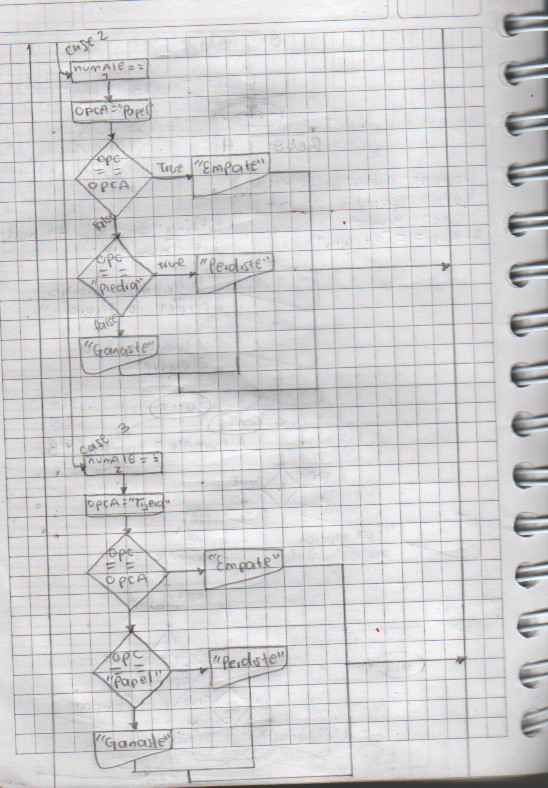 case 2
numAle ==
1
OPCA="Papel"
OPC
==
OPCA
True
"Empate"
false
OPC
==
"Piedra"
True
"Perdiste"
false
"Ganaste"
case 3
numAle ==
2
OPCA="Tijera"
OPC
==
OPCA
"Empate"
OPC
==
"Papel"
"Perdiste"
"Ganaste"